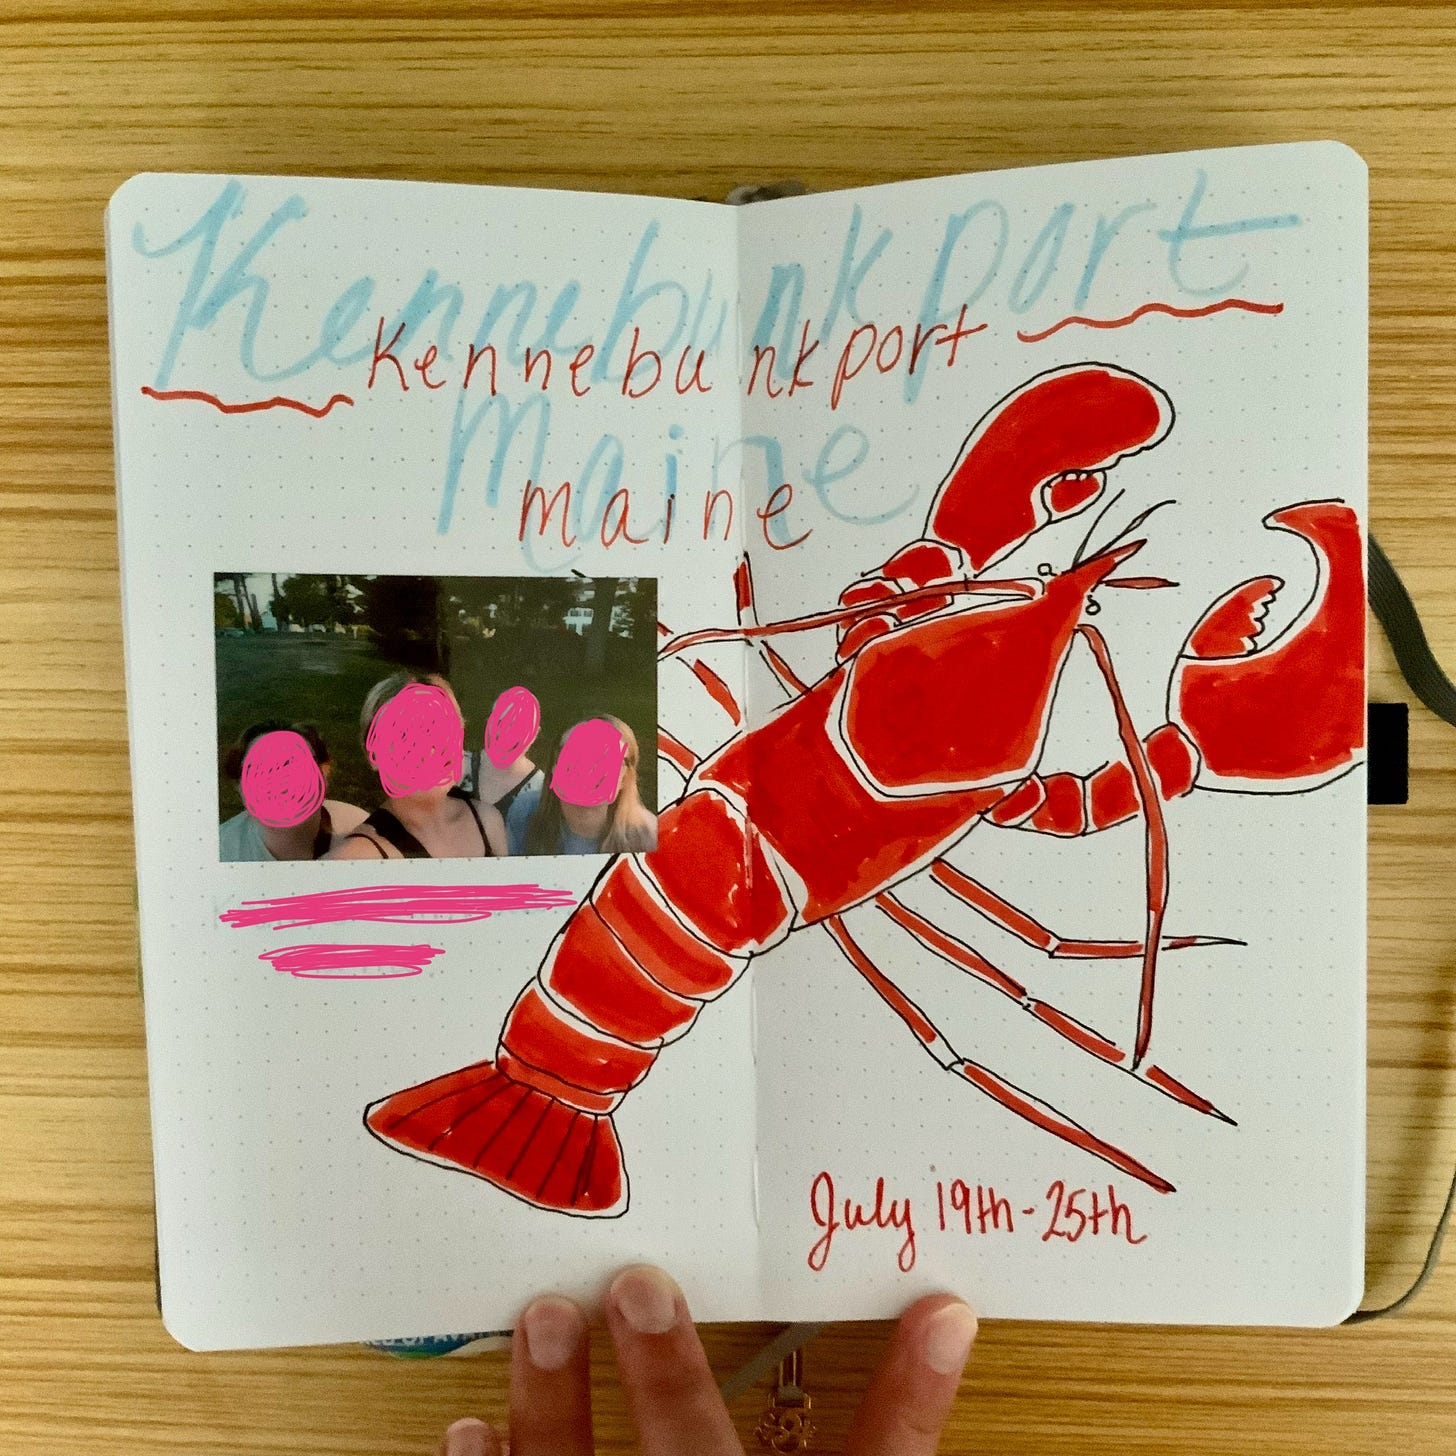 Kennebunkport
Kennebunkport
Maine
maine
July 19th-25th